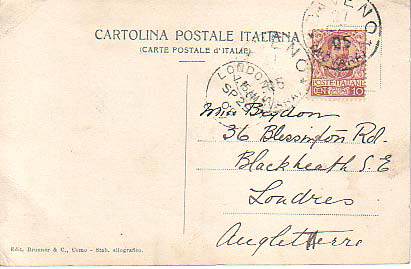 CARTOLINA POSTALE ITALIANA
(CARTE POSTALE d'ITALIE)
VENO
05
VENO
LONDON
SP 2
POSTE ITALIANE
CENT 10
Miss Brydon
36 Blessington Rd.
Blackheath S.E
Londres
Angleterre
Ediz. Brunner & C., Como - Stab. eliografico.